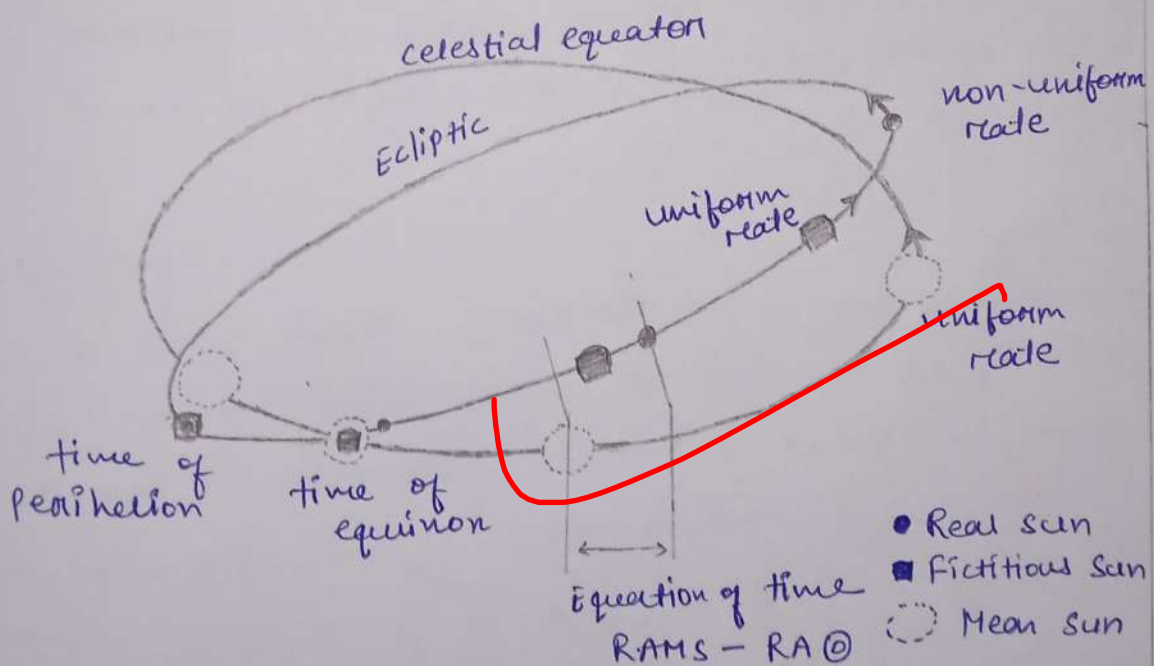 celestial equator
Ecliptic
non-uniform
rate
uniform
rate
uniform
rate
time of
Perihelion
time of
equinox
Equation of time
RAMS - RA ⊙
Real sun
Fictitious Sun
Mean Sun